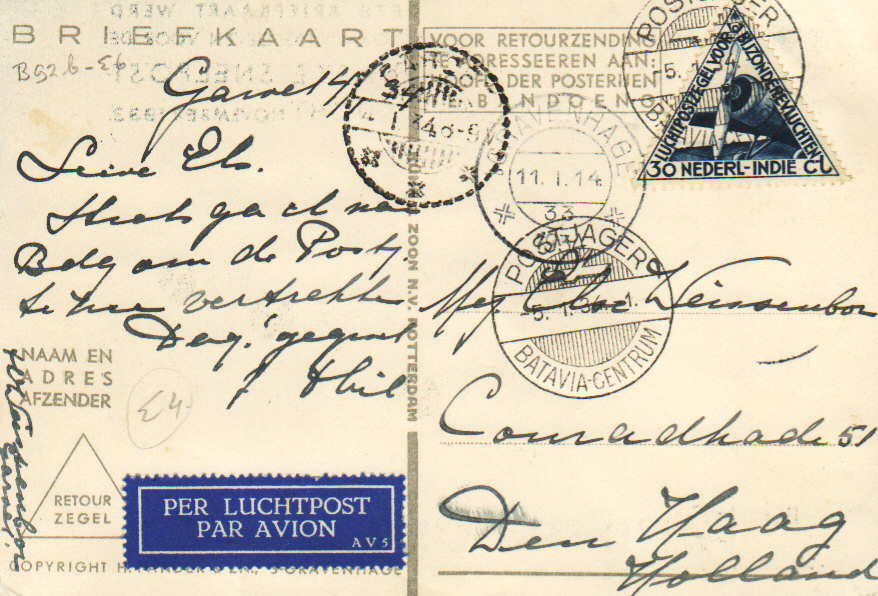 BRIEFKAART
B926-E6
Garoet 14/1
Lieve Els.
Straks ga ik naar
Bdg om de Postj.
te zien vertrekken
Dag! gegroet
Phil
NAAM EN
ADRES
AFZENDER
Weissenbor
Garoet
E4
RETOUR
ZEGEL
PER LUCHTPOST
PAR AVION
AV5
COPYRIGHT
'S-GRAVENHAGE
ZOON N.V. ROTTERDAM
VOOR RETOURZENDING
ADRESSEEREN AAN:
HOOFD DER POSTERIJEN
TE BANDOENG
POSTJAGER
5.1.34
LUCHTPOSTZEGEL VOOR BIJZONDERE VLUCHTEN
30 NEDERL-INDIE CT
GAROET
'S GRAVENHAGE
11.I.14
33
POSTJAGER
5.1.34
BATAVIA-CENTRUM
Mej. Else Weissenborn
Conradkade 51
Den Haag
Holland